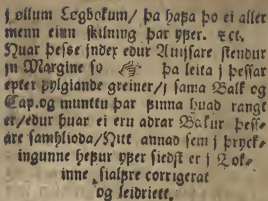 j ollum Løgbokum/ þa hafa þo ei aller
menn einn skilning þar yfer. ꝛct.
Nuar þesse jndex edur Auijsare stendur
jn Margine so ☞ þa leita j þessar
epter fylgiande greiner/ j sama Balk og
Cap. og munttu þar finna huad rangt
er/ edur huar ei eru adrar Bækur þess-
are samhlioda/ Nytt annad sem j pryck-
ingunne hefur yfer siedst er j Lok-
inne sialfre corrigerat
og leidriett.